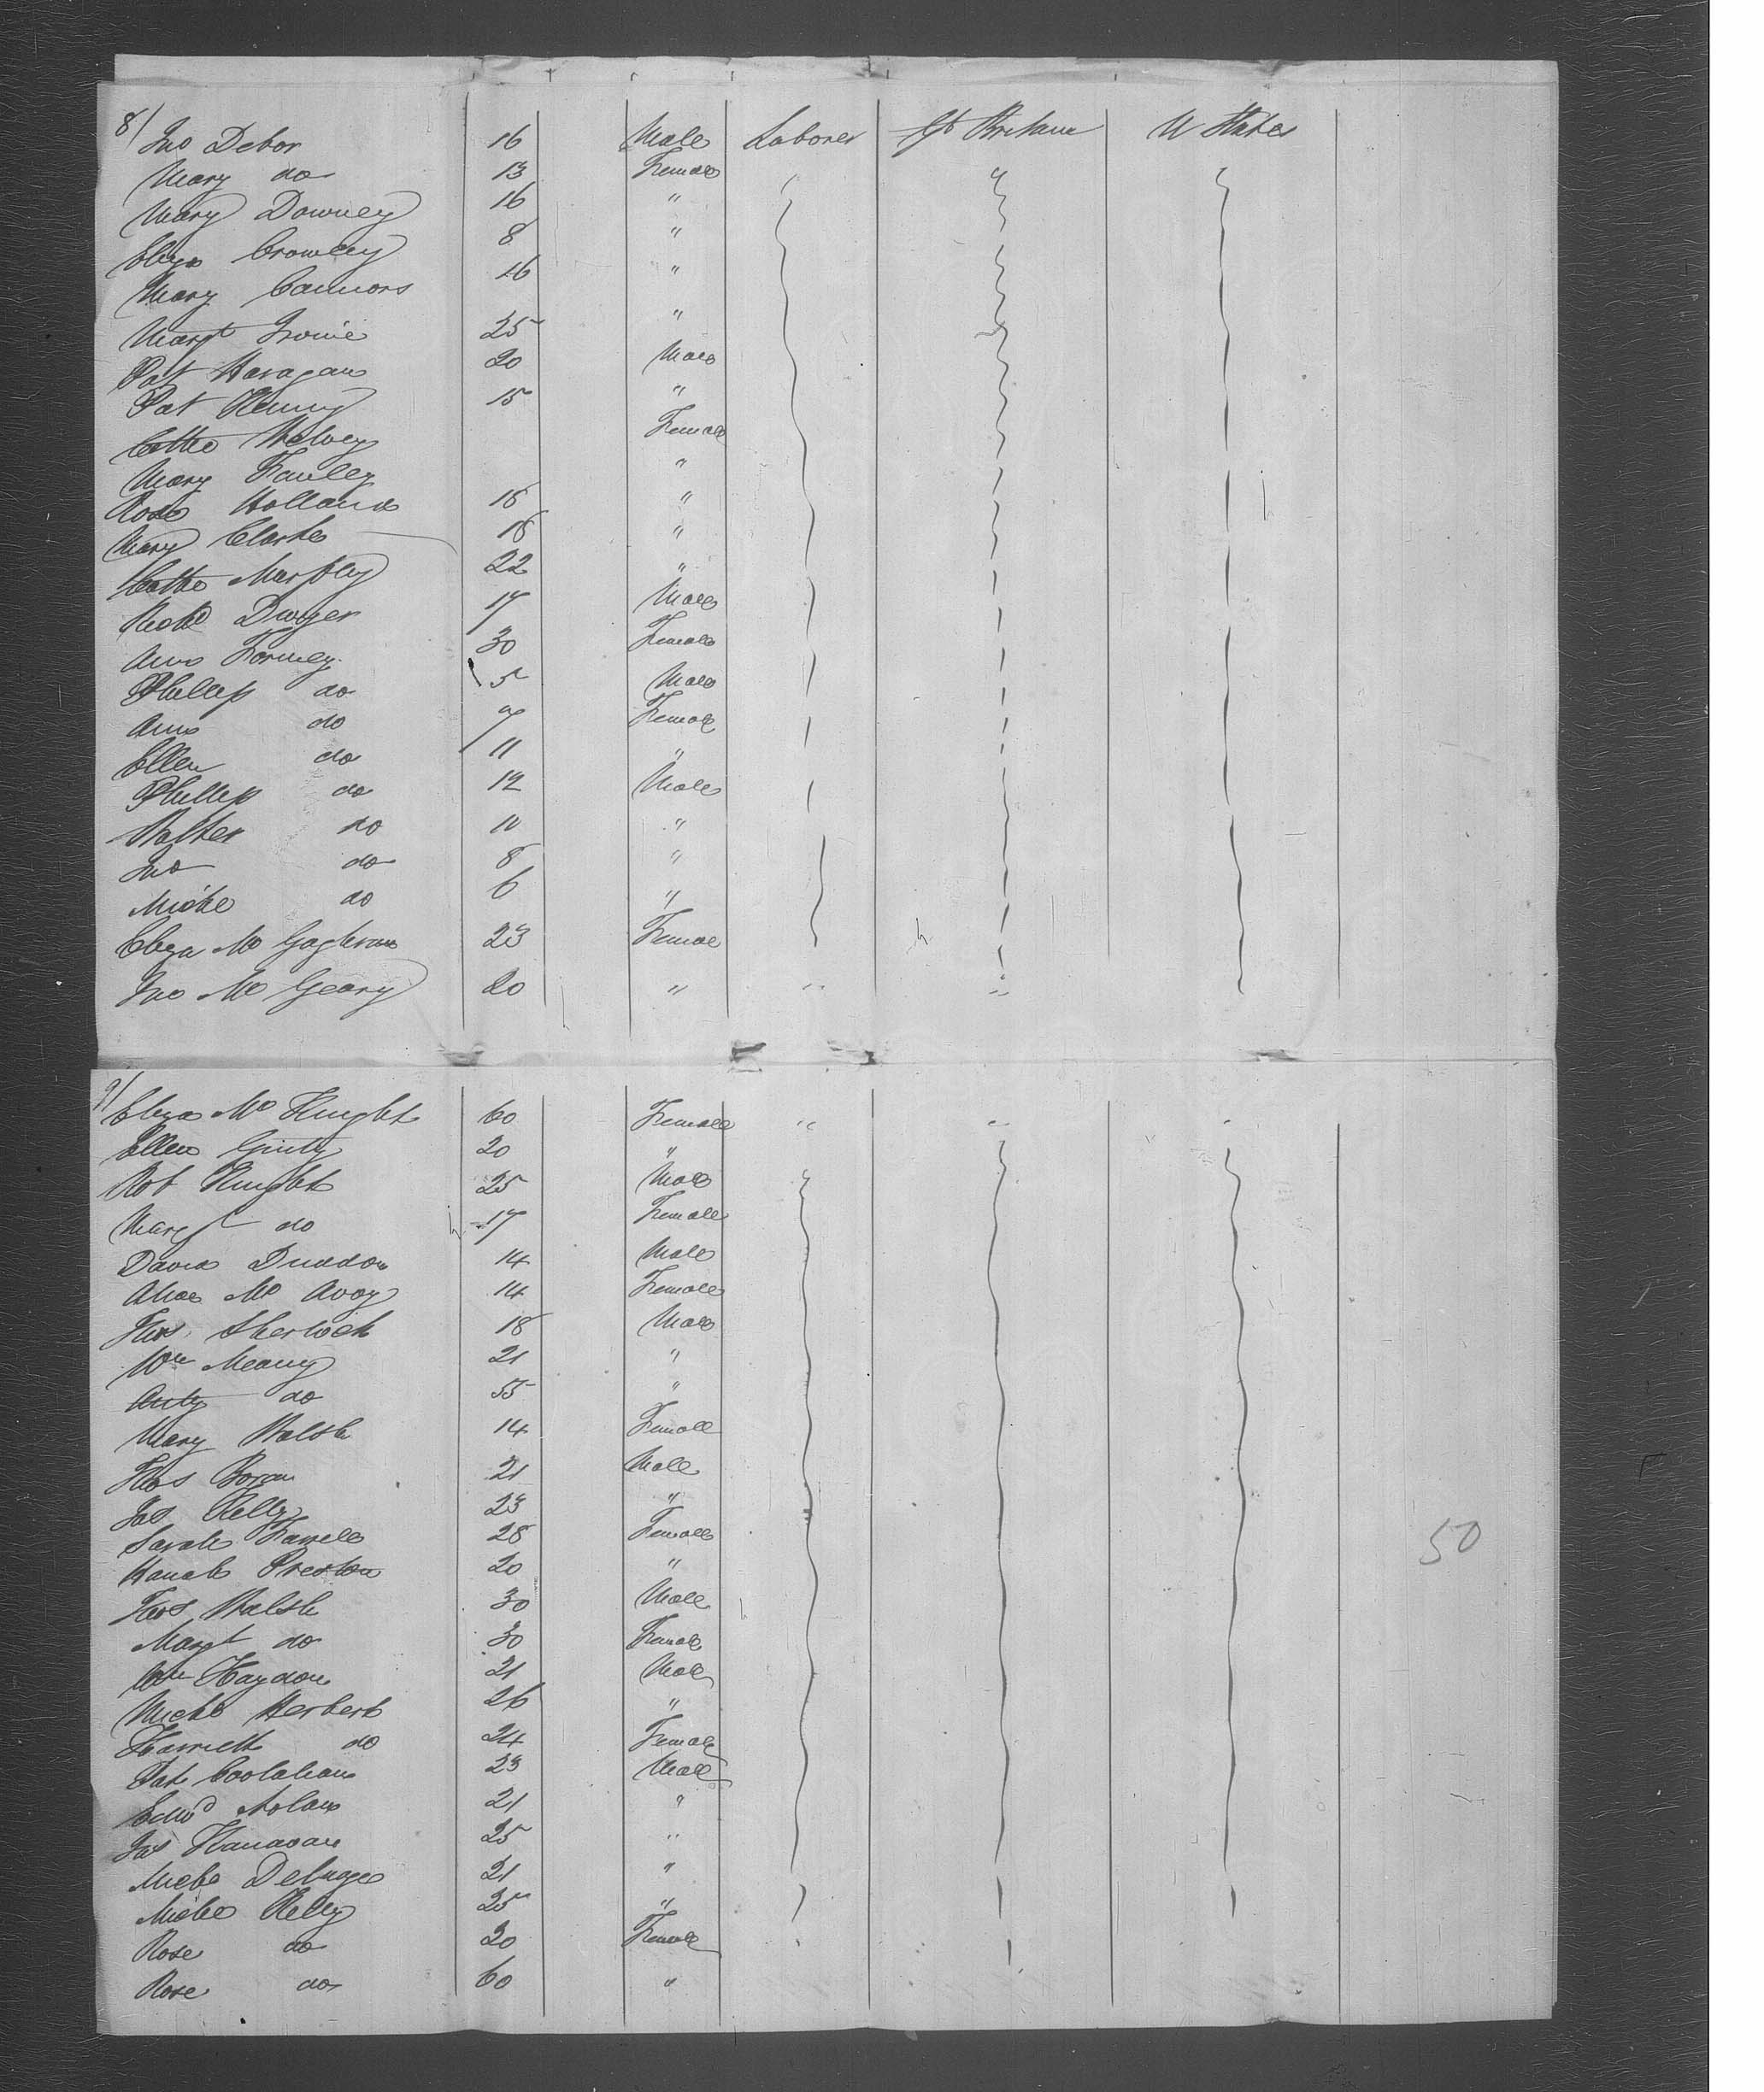 8/ Jno Debor 16 Male Laborer Gt Britain U States
Mary do 13 Female
Mary Downey 16 "
Eliza Crowley 8 "
Mary Connors 16 "
Margt Irvine 25 "
Pat Haragan 20 Male
Pat Kenny 15 "
Cathe Helvey Female
Mary Fauley "
Rose Holland 18 "
Mary Clarke 18 "
Cathe Murphy 22 "
Michl Dwyer 17 Male
Ann Formey 30 Female
Phillip do 5 Male
Ann do 7 Female
Ellen do 11 "
Phillip do 12 Male
Walter do 10 "
Jno do 8 "
Miche do 6 "
Eliza Mc 23 Female
Jno Mc Geary 20 " " "
9/ Eliza Mc Knight 60 Female " " "
Ellen Ginty 20 "
Rob Knight 25 Male
Margt do 17 Female
David Duddon 14 Male
Alice Mc Avoy 14 Female
Thos Sherlock 18 Male
Wm Meany 21 "
Anty do 55 "
Mary Walsh 14 Female
Thos Boran 21 Male
Jas Kelly 23 "
Sarah Farrell 28 Female
Hanah Preston 20 "
Thos Walsh 30 Male
Margt do 30 Female
Wm Haydon 21 Male
Miche Herbert 26 "
Harriett do 24 Female
Pat Coolahan 23 Male
Edwd Nolan 21 "
Jas Kanavan 25 "
Miche Deluge 21 "
Miche Kelly 25 "
Rose do 20 Female
Rose do 60 "
50